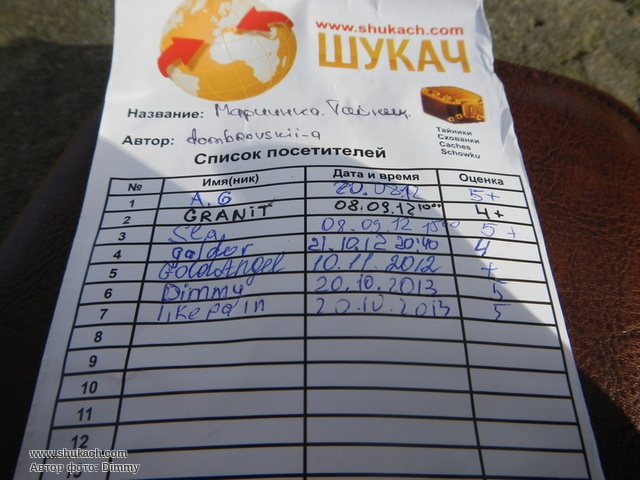 www.shukach.com
ШУКАЧ
Название: Маринкa. Тайник.
Автор: dombrovskii-a
Тайники
Схованки
Caches
Schowku
Список посетителей
№ Имя(ник) Дата и время Оценка
1 A.G 20.0812 5+
2 GRANiT 08.09.12 15⁰⁰ 4+
3 08.09.12 5+
4 galdor 21.10.12 20:40 4
5 GoldAngel 10.11.2012 +
6 Dimmy 20.10.2013 5
7 likepain 20.10.2013 5
8
9
10
11
12
13
www.shukach.com
Автор фото: Dimmy